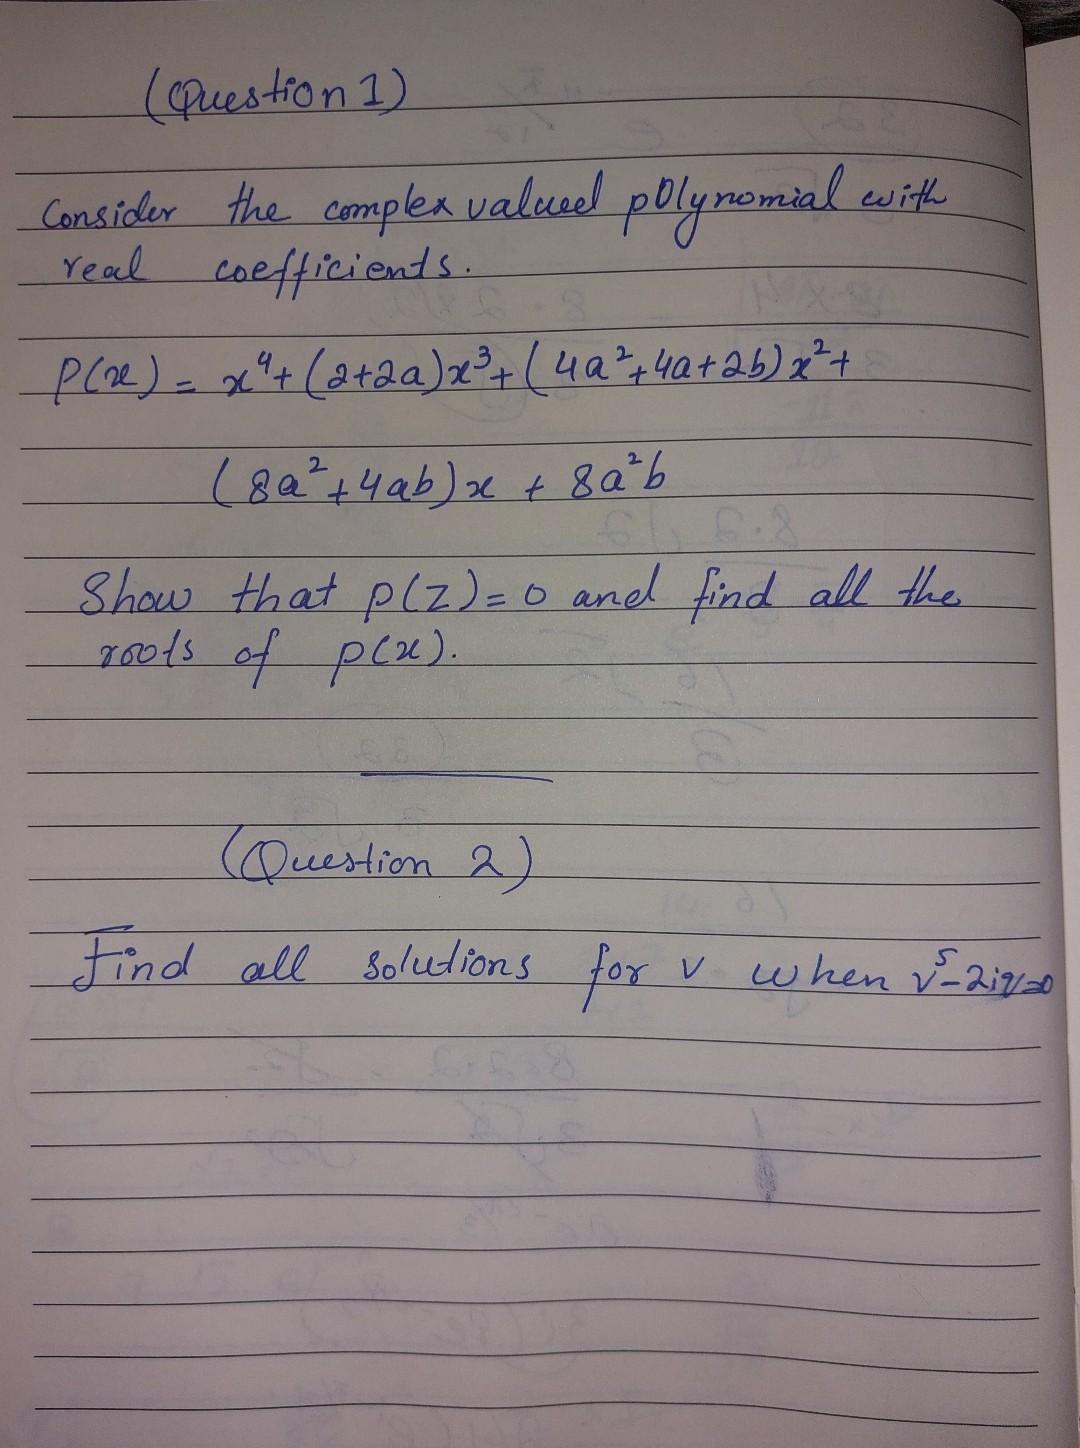 (Question 1)
Consider the complex valued polynomial with
real coefficients.
P(x) = x⁴ + (2+2a)x³ + (4a²+4a+2b)x² +
(8a²+4ab)x + 8a²b
Show that p(z) = 0 and find all the
roots of p(x).
(Question 2)
Find all solutions for v when v⁵-2iv=0